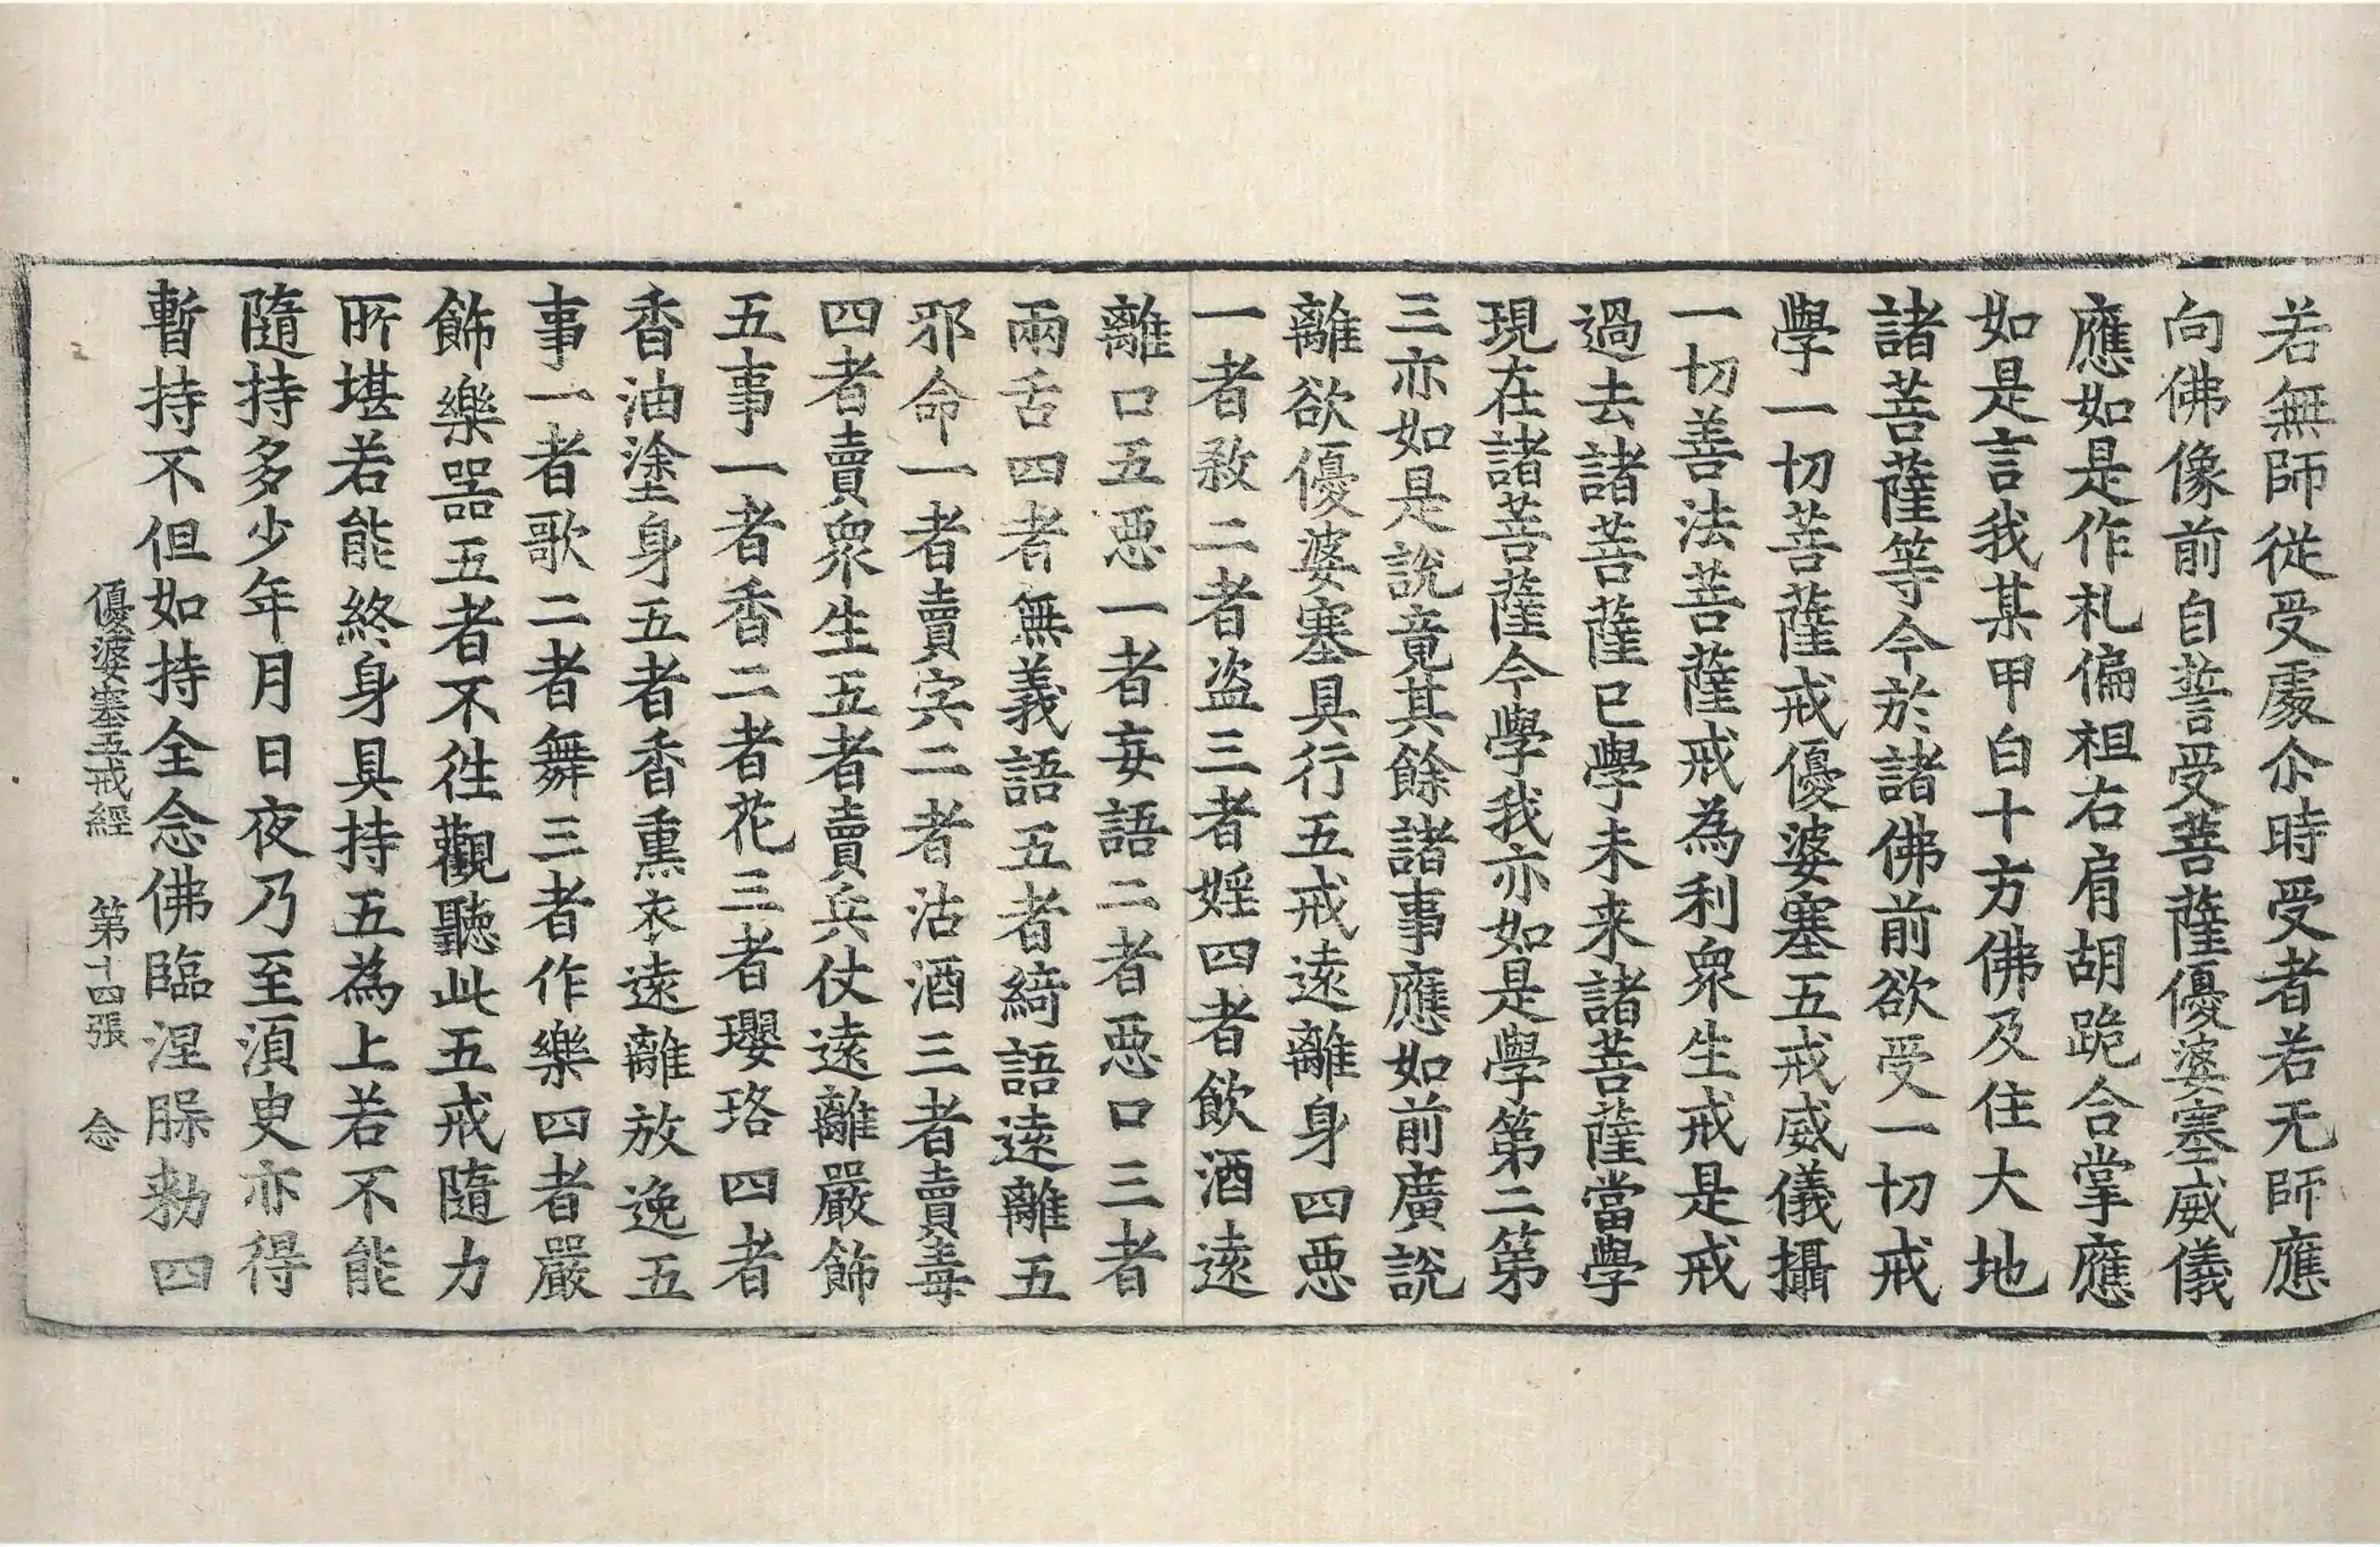 若無師從受處尒時受者若无師應
向佛像前自誓受菩薩優婆塞威儀
應如是作礼偏袒右肩胡跪合掌應
如是言我某甲白十方佛及住大地
諸菩薩等今於諸佛前欲受一切戒
學一切菩薩戒優婆塞五戒威儀攝
一切善法菩薩戒為利衆生戒是戒
過去諸菩薩已學未来諸菩薩當學
現在諸菩薩今學我亦如是學第二第
三亦如是說竟其餘諸事應如前廣說
離欲優婆塞具行五戒遠離身四惡
一者敎二者盗三者婬四者飲酒遠
離口五惡一者妄語二者惡口三者
兩舌四者無義語五者綺語遠離五
邪命一者賣宍二者沽酒三者賣毒
四者賣衆生五者賣兵仗遠離嚴飾
五事一者香二者花三者瓔珞四者
香油塗身五者香熏衣遠離放逸五
事一者歌二者舞三者作樂四者嚴
飾樂器五者不徃觀聽此五戒隨力
所堪若能終身具持五為上若不能
隨持多少年月日夜乃至湏臾亦得
暫持不但如持全念佛臨涅槃勑四
優婆塞五戒經 第十四張 念